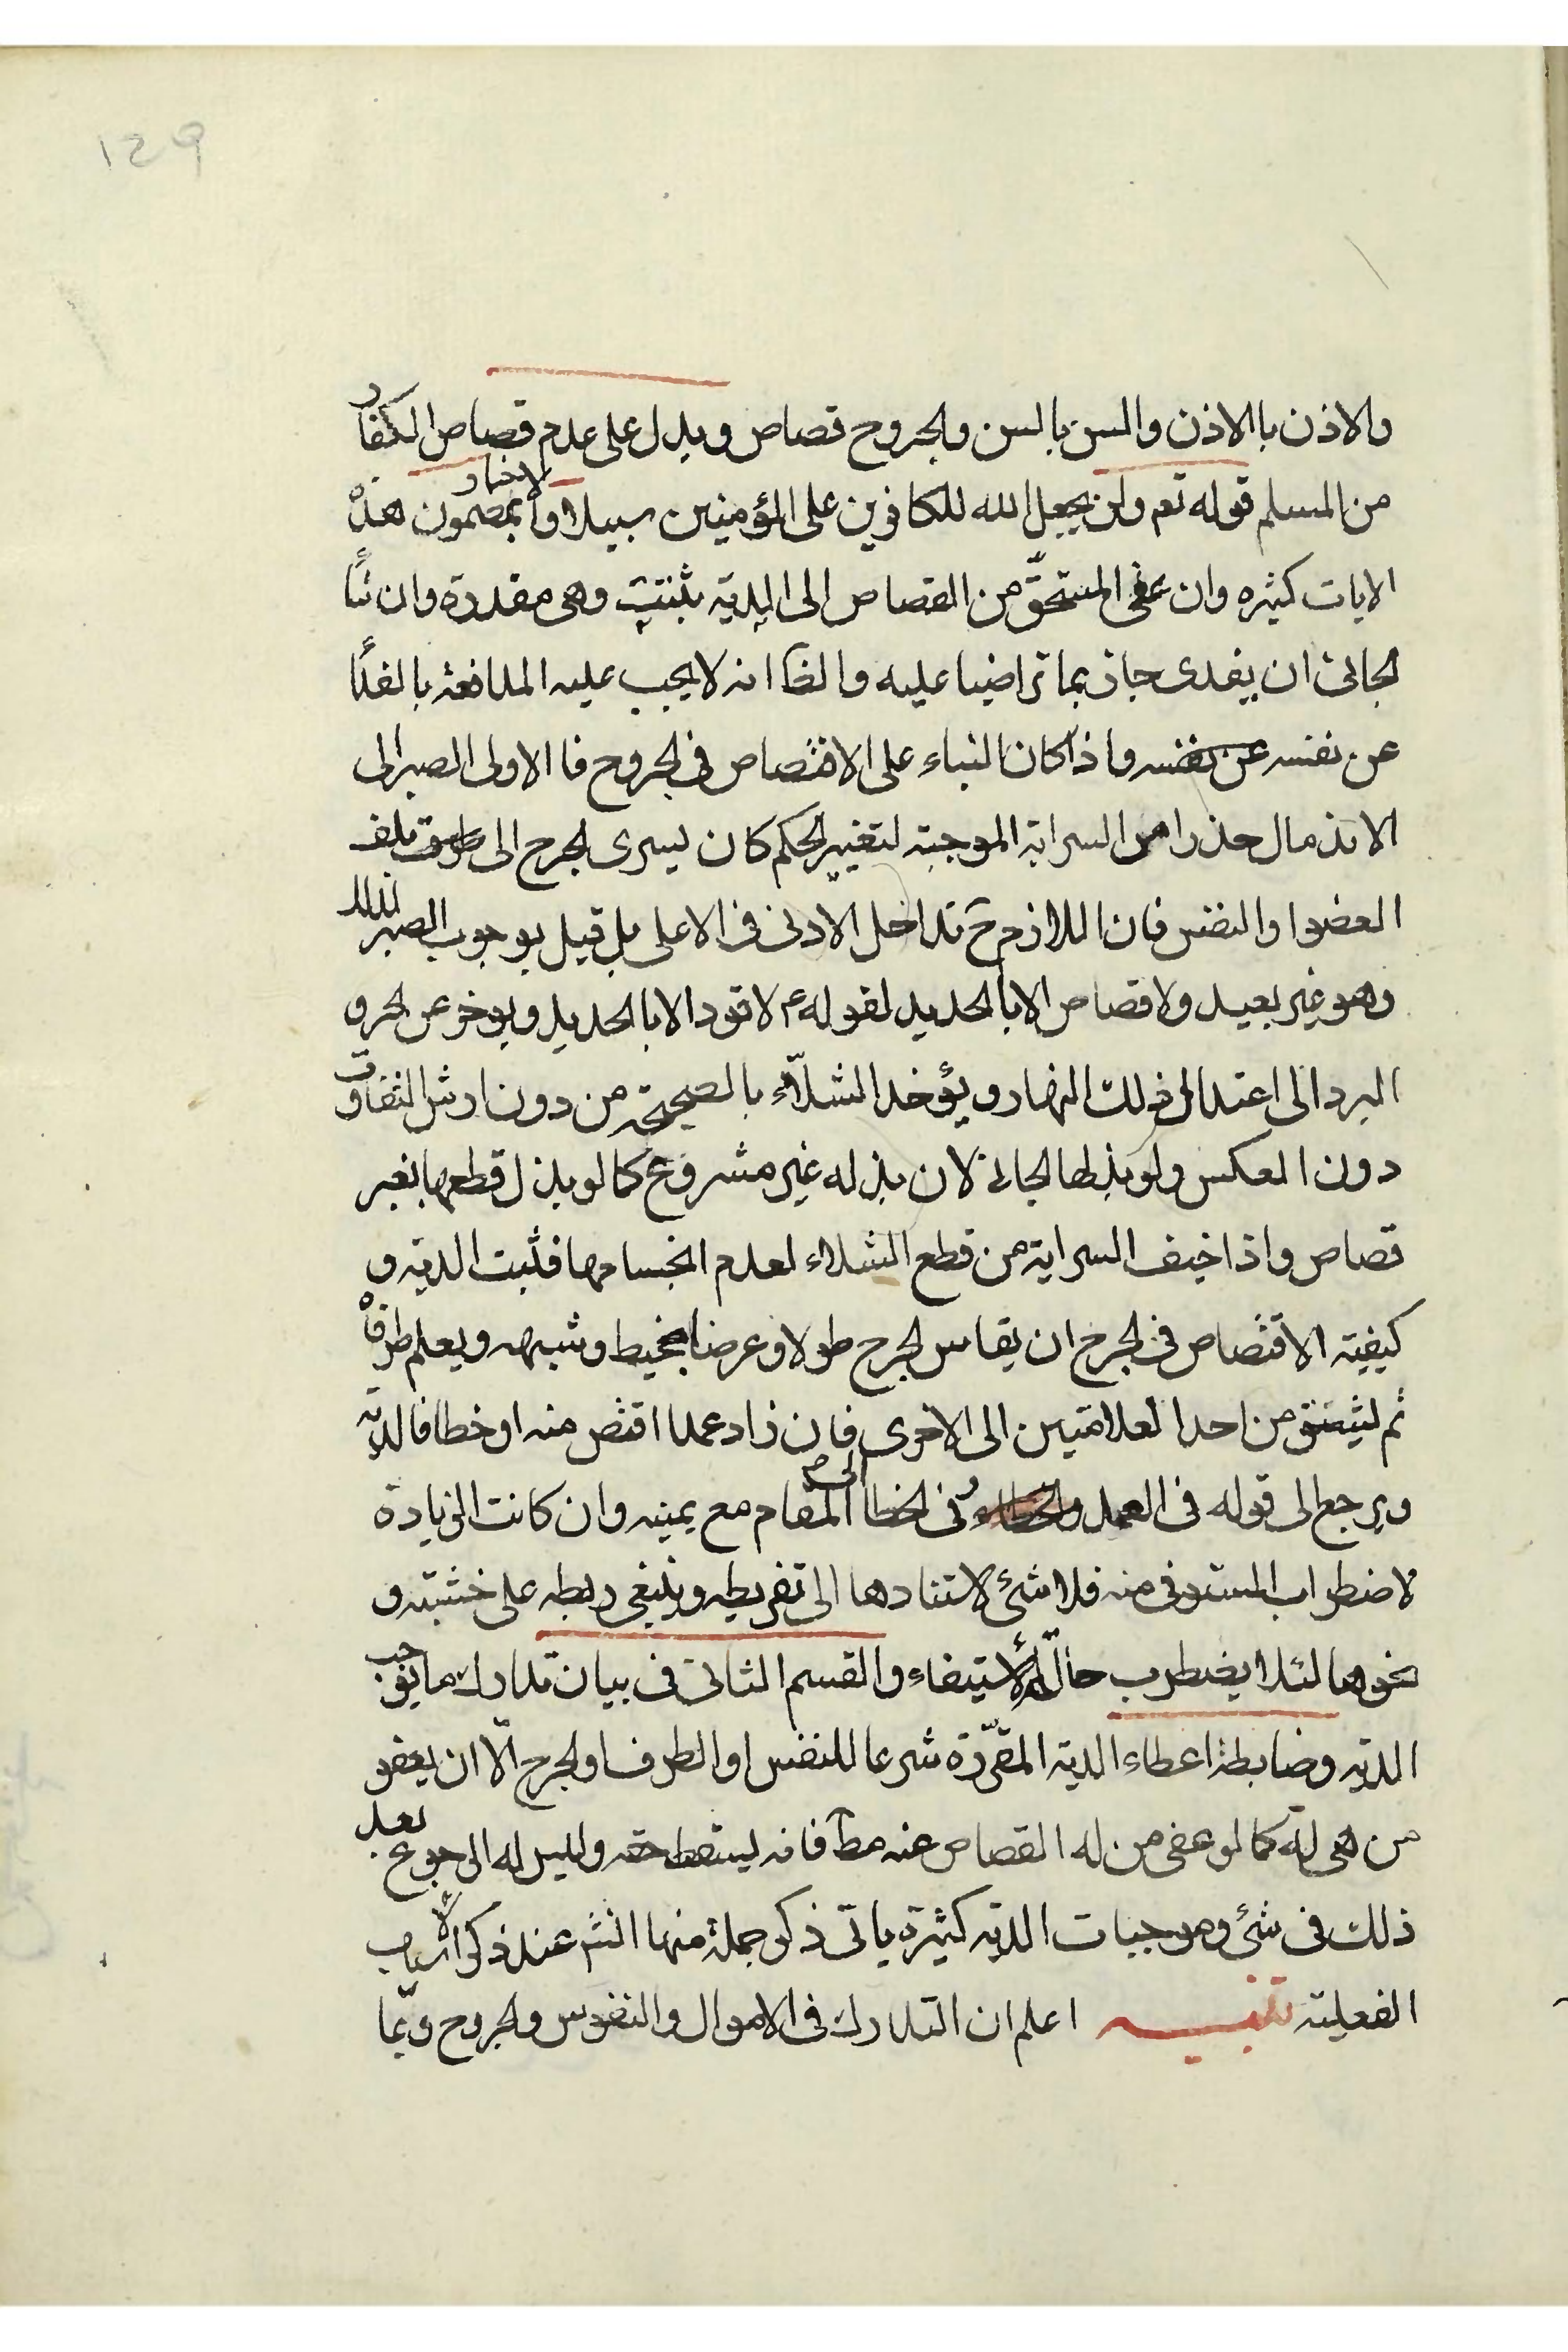 129
والاذن باالاذن والسن بالسن والجروح قصاص ويدل على عدم قصاص الكفار
من المسلم قوله تعم ولن يجعل الله للكافرين على المؤمنين سبيلا والاخبار بمضمون هذه
الايات كثيره وان عفى المستحق من القصاص الى الدية يثبت وهى مقدرة وان شاء
الجانى ان يفدى جاز بما تراضيا عليه والظ انه لا يجب عليه المدافعة بالفداء
عن نفسه عن نفسه واذا كان البناء على الاقتصاص فى الجروح فا الاولى الصبر الى
الاندمال حذرا من السراية الموجبة لتغيير الحكم كان يسرى الجرح الى تلف
العضوا والنفس فان اللازم ح تداخل الادنى فى الاعلى بل قيل بوجوب الصبر لذلك
وهو غير بعيد ولا قصاص الا باالحديد لقوله ع لا قود الا باالحديد ويوخر عن الحر و
البرد الى اعتدال ذلك النهار ويؤخذ الشلاء بالصحيحة من دون ارش التفاوت
دون العكس ولو بذلها الجانى لان بذله غير مشروع كما لو بذل قطعها بغير
قصاص واذا خيف السراية من قطع الشلاء لعدم انحسامها فثبت الدية و
كيفية الاقتصاص فى الجرح ان يقاس الجرح طولا وعرضا بخيط وشبهه ويعلم طرفاه
ثم ليشق من احدا لعلامتين الى الاخرى فان زاد عمدا اقتص منه او خطا فالدية
ويرجع الى قوله فى العمد والخطاء وفى الخطا الى المقام مع يمينه وان كانت الزيادة
لاضطراب المستوفى منه فلا شئ لاستنادها الى تفريطه وينبغى ربطه على خشبته و
نحوها لئلا يضطرب حال الاستيفاء والقسم الثانى فى بيان تدارك ما يوجب
الدية وضابطة اعطاء الدية المقررة شرعا للنفس او الطرف او الجرح الا ان يعفو
من هى له كما لو عفى من له القصاص عنه مط فانه ليسقط حقه وليس له الرجوع بعد
ذلك فى شئ وموجبات الدية كثيرة ياتى ذكر جملة منها انش عند ذكر الاسباب
الفعلية تنبيه اعلم ان التدارك فى الاموال والنفوس والجروح ربما